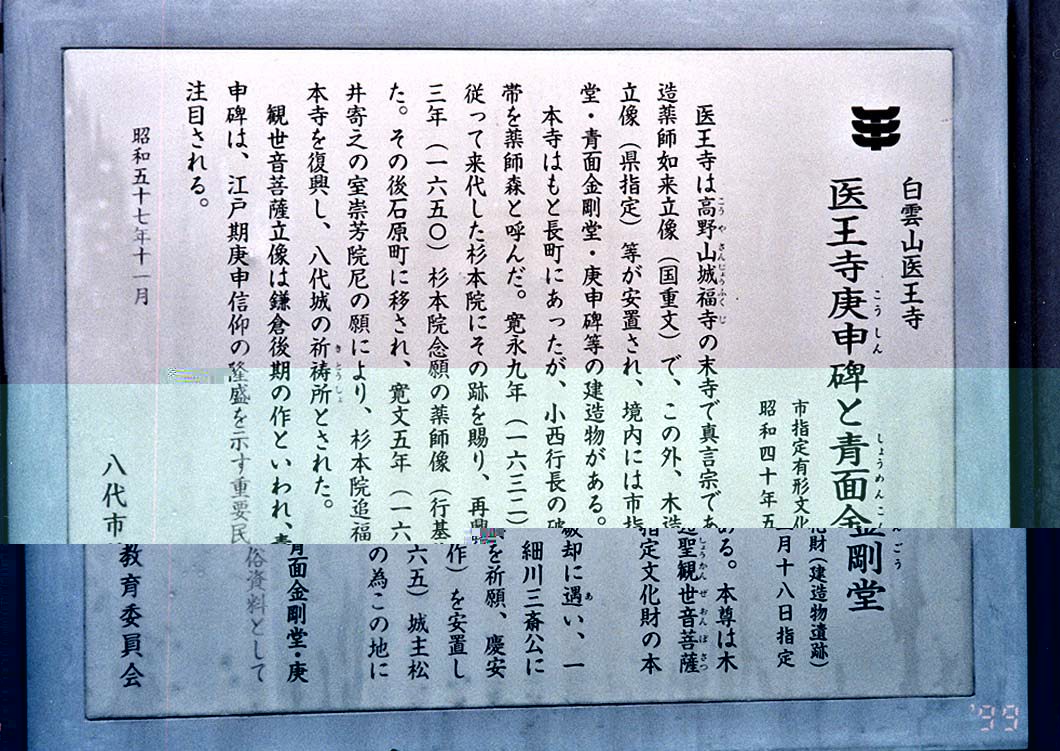 白雲山医王寺
医王寺庚申碑と青面金剛堂
市指定有形文化財(建造物遺跡)
昭和四十年五月十八日指定
医王寺は高野山城福寺の末寺で真言宗である。本尊は木
造薬師如来立像(国重文)で、この外、木造聖観世音菩薩
立像(県指定)等が安置され、境内には市指定文化財の本
堂・青面金剛堂・庚申碑等の建造物がある。
本寺はもと長町にあったが、小西行長の破却に遇い、一
帯を薬師森と呼んだ。寛永九年(一六三二)細川三斎公に
従って来代した杉本院にその跡を賜り、再興を祈願、慶安
三年(一六五〇)杉本院念願の薬師像(行基作)を安置し
た。その後石原町に移され、寛文五年(一六六五)城主松
井寄之の室崇芳院尼の願により、杉本院追福の為この地に
本寺を復興し、八代城の祈祷所とされた。
観世音菩薩立像は鎌倉後期の作といわれ、青面金剛堂・庚
申碑は、江戸期庚申信仰の隆盛を示す重要民俗資料として
注目される。
昭和五十七年十一月
八代市教育委員会
'99